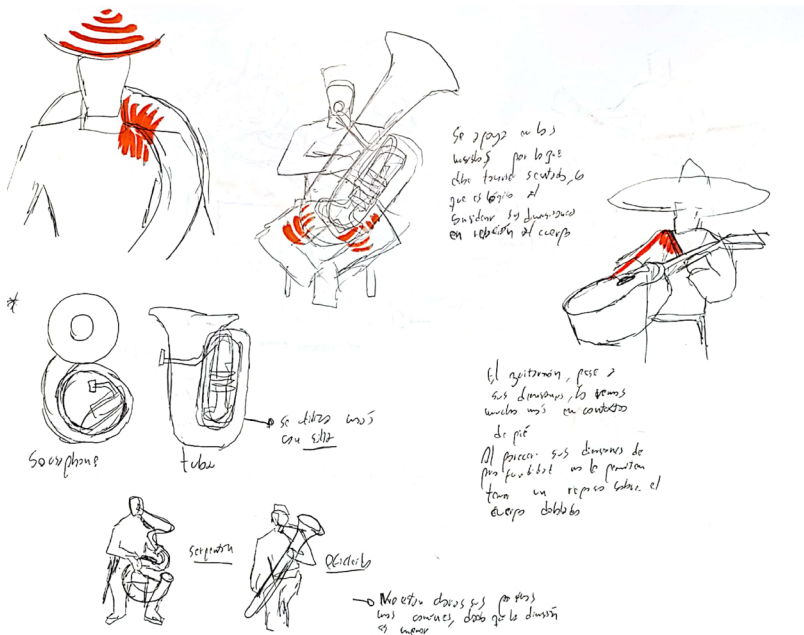 Se apoya en los
muslos por lo que
debe tocarse sentado, lo
que es lógico al
considerar sus dimensiones
en relación al cuerpo
El guitarrón, pese a
sus dimensiones, lo vemos
mucho más en contextos
de pié
Al parecer sus dimensiones de
profundidad no le permiten
tener un reposo sobre el
cuerpo doblado
*
Sousaphone
tuba
se utiliza más
con silla
serpentón
Oficleido
No están claras sus posturas
más comunes, dado que la dimensión
es menor